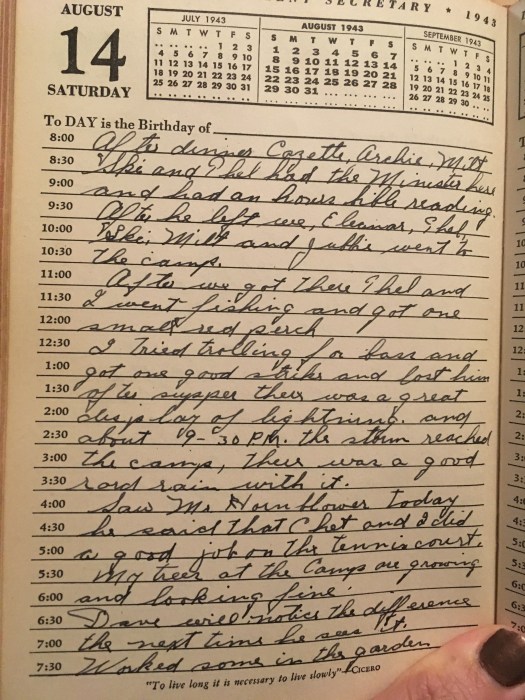 ENT SECRETARY * 1943
AUGUST
14
SATURDAY
JULY 1943
S M T W T F S
.. .. .. .. 1 2 3
4 5 6 7 8 9 10
11 12 13 14 15 16 17
18 19 20 21 22 23 24
25 26 27 28 29 30 31
AUGUST 1943
S M T W T F S
1 2 3 4 5 6 7
8 9 10 11 12 13 14
15 16 17 18 19 20 21
22 23 24 25 26 27 28
29 30 31 .. .. .. ..
SEPTEMBER 1943
S M T W T F S
.. .. .. 1 2 3 4
5 6 7 8 9 10 11
12 13 14 15 16 17 18
19 20 21 22 23 24 25
26 27 28 29 30 .. ..
To DAY is the Birthday of
8:00 After dinner Cozette, Archie, Milt
8:30 Ski and Chet had the Minister here
9:00 and had an hours bible reading.
9:30 After he left we, Eleanor, Chet,
10:00 Ski, Milt and Jubbie went to
10:30 the camp.
11:00 After we got there Chet and
11:30 I went fishing and got one
12:00 small red perch
12:30 I tried trolling for bass and
1:00 got one good strike and lost him
1:30 after supper there was a great
2:00 display of lightning. and
2:30 about 9-30 P.M. the storm reached
3:00 the camp, There was a good
3:30 hard rain with it.
4:00 Saw Mr Hornblower today
4:30 he said that Chet and I did
5:00 a good job on the tennis court.
5:30 My trees at the Camps are growing
6:00 and looking fine.
6:30 Dave will notice the difference
7:00 the next time he sees it.
7:30 Worked some in the garden
"To live long it is necessary to live slowly"—CICERO